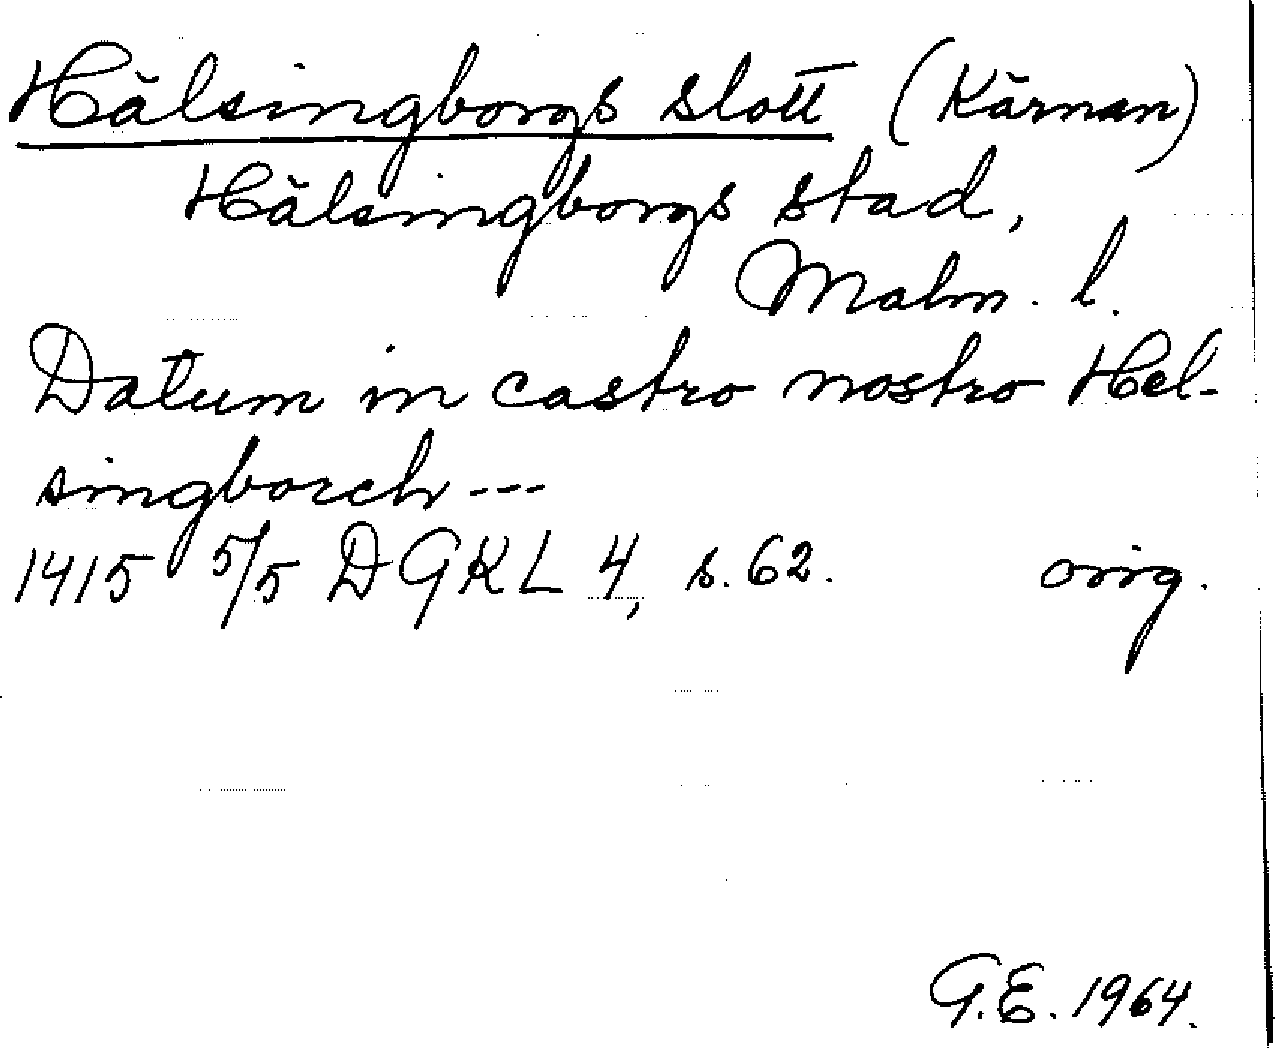 Hälsingborgs slott (Kärnan)
Hälsingborgs stad,
Malm. l.
Datum in castro nostro Hel-
singborch ---
1415 5/5 DGKL 4, s. 62. orig.
G.E. 1964.